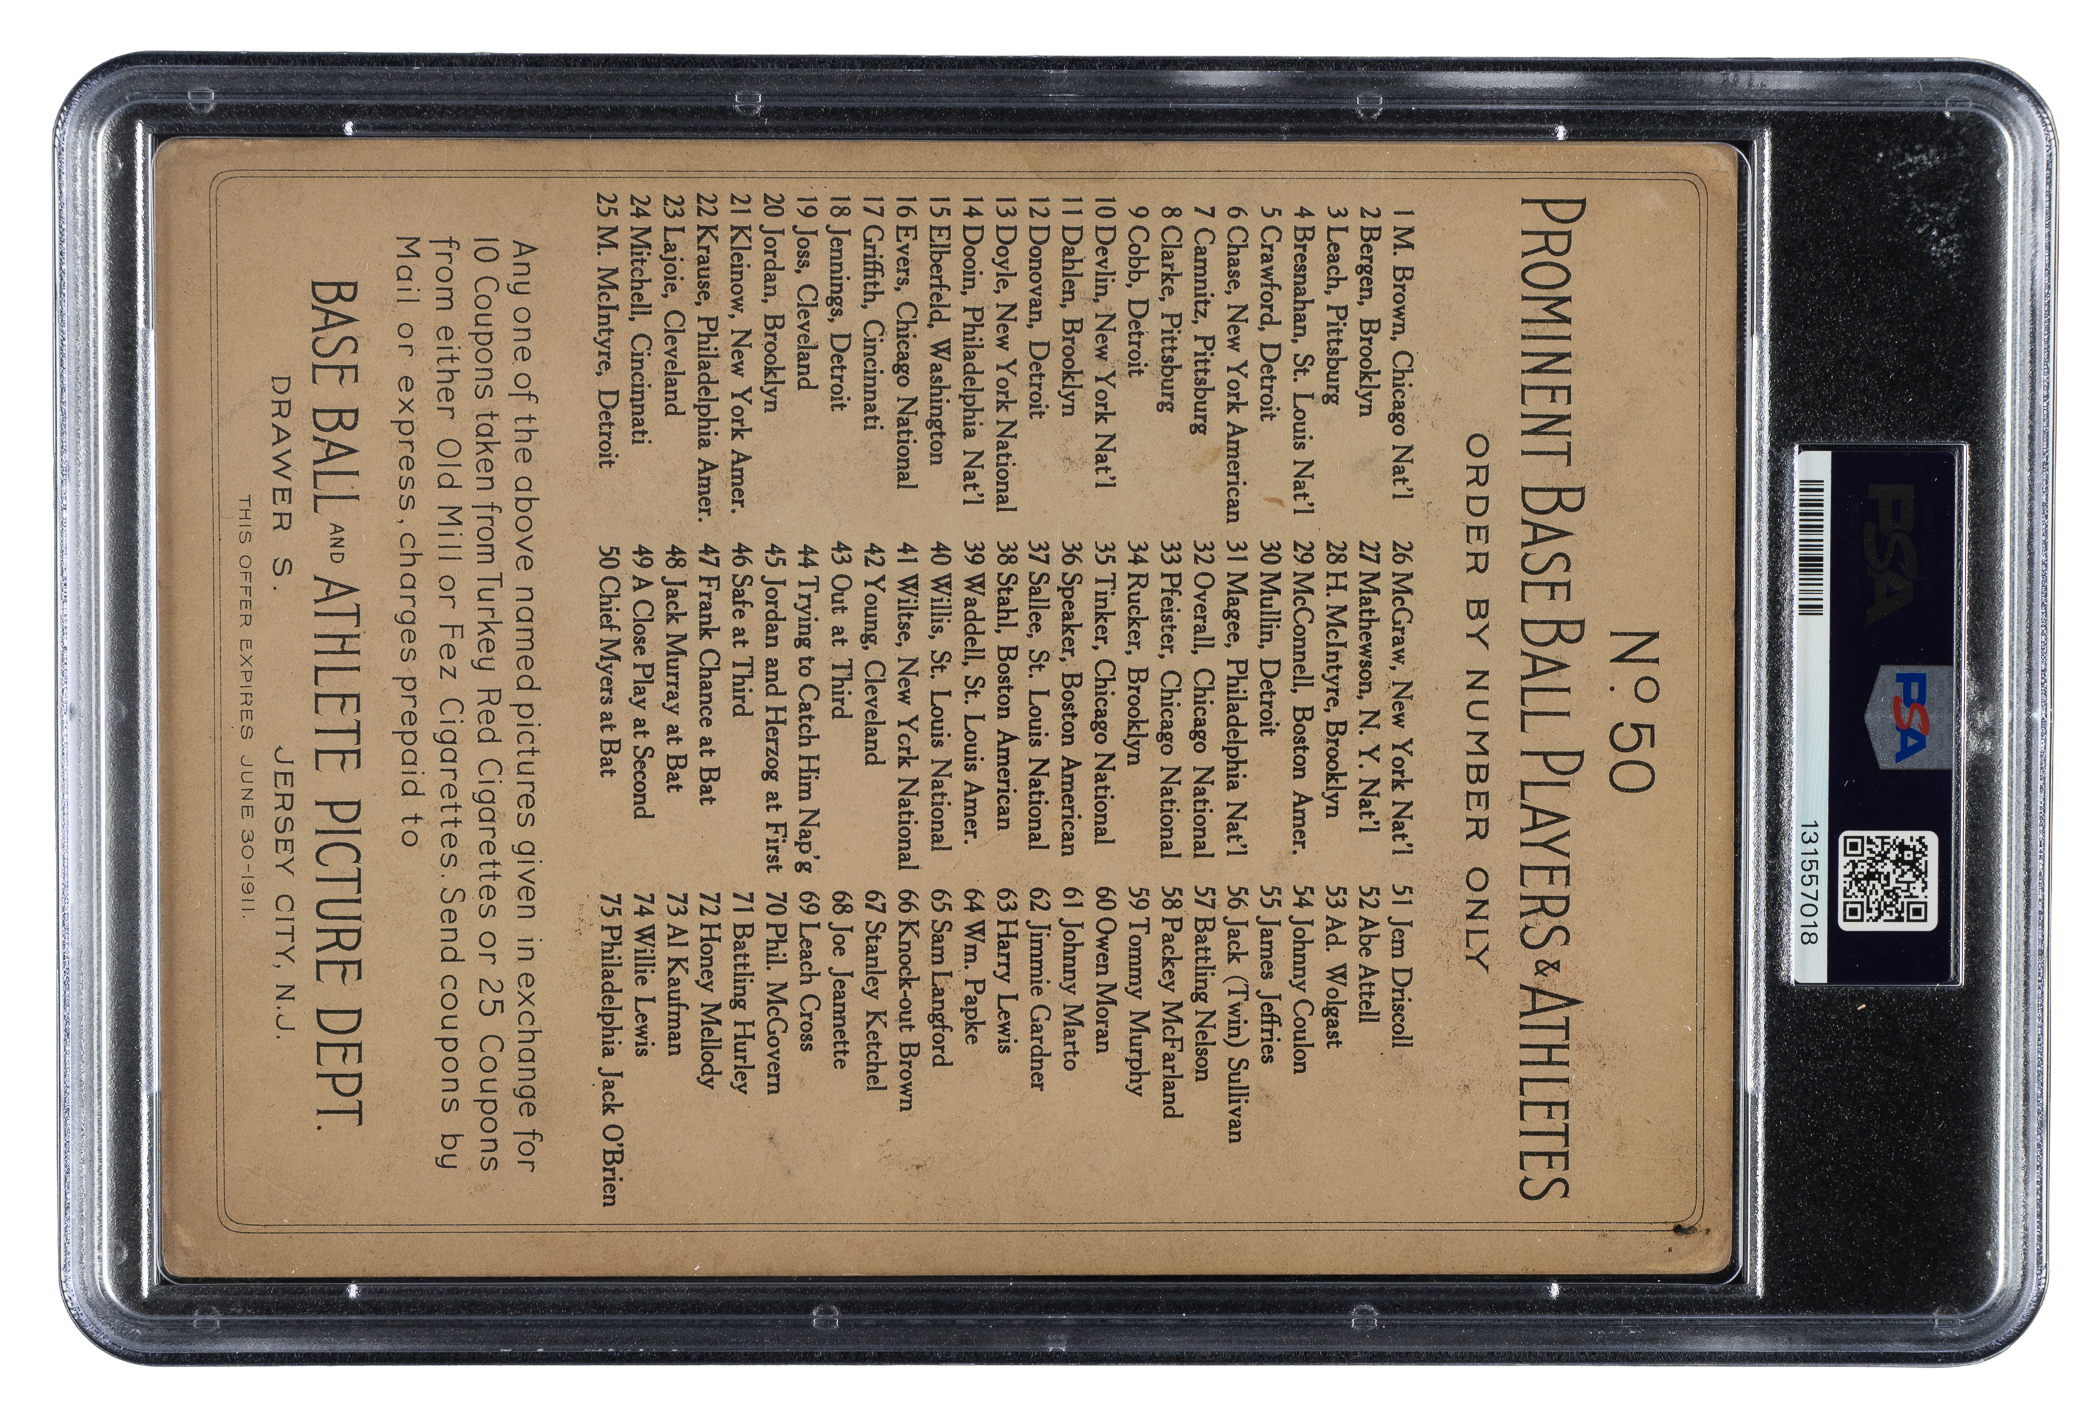 No. 50
PROMINENT BASE BALL PLAYERS & ATHLETES
ORDER BY NUMBER ONLY
1 M. Brown, Chicago Nat'l
2 Bergen, Brooklyn
3 Leach, Pittsburg
4 Bresnahan, St. Louis Nat'l
5 Crawford, Detroit
6 Chase, New York American
7 Camnitz, Pittsburg
8 Clarke, Pittsburg
9 Cobb, Detroit
10 Devlin, New York Nat'l
11 Dahlen, Brooklyn
12 Donovan, Detroit
13 Doyle, New York National
14 Dooin, Philadelphia Nat'l
15 Elberfeld, Washington
16 Evers, Chicago National
17 Griffith, Cincinnati
18 Jennings, Detroit
19 Joss, Cleveland
20 Jordan, Brooklyn
21 Kleinow, New York Amer.
22 Krause, Philadelphia Amer.
23 Lajoie, Cleveland
24 Mitchell, Cincinnati
25 M. McIntyre, Detroit
26 McGraw, New York Nat'l
27 Mathewson, N. Y. Nat'l
28 H. McIntyre, Brooklyn
29 McConnell, Boston Amer.
30 Mullin, Detroit
31 Magee, Philadelphia Nat'l
32 Overall, Chicago National
33 Pfeister, Chicago National
34 Rucker, Brooklyn
35 Tinker, Chicago National
36 Speaker, Boston American
37 Sallee, St. Louis National
38 Stahl, Boston American
39 Waddell, St. Louis Amer.
40 Willis, St. Louis National
41 Wiltse, New York National
42 Young, Cleveland
43 Out at Third
44 Trying to Catch Him Nap'g
45 Jordan and Herzog at First
46 Safe at Third
47 Frank Chance at Bat
48 Jack Murray at Bat
49 A Close Play at Second
50 Chief Myers at Bat
51 Jem Driscoll
52 Abe Attell
53 Ad. Wolgast
54 Johnny Coulon
55 James Jeffries
56 Jack (Twin) Sullivan
57 Battling Nelson
58 Packey McFarland
59 Tommy Murphy
60 Owen Moran
61 Johnny Marto
62 Jimmie Gardner
63 Harry Lewis
64 Wm. Papke
65 Sam Langford
66 Knock-out Brown
67 Stanley Ketchel
68 Joe Jeannette
69 Leach Cross
70 Phil. McGovern
71 Battling Hurley
72 Honey Mellody
73 Al Kaufman
74 Willie Lewis
75 Philadelphia Jack O'Brien
Any one of the above named pictures given in exchange for
10 Coupons taken from Turkey Red Cigarettes or 25 Coupons
from either Old Mill or Fez Cigarettes. Send coupons by
Mail or express, charges prepaid to
BASE BALL AND ATHLETE PICTURE DEPT.
DRAWER S. JERSEY CITY, N.J.
THIS OFFER EXPIRES JUNE 30-1911.
PSA
PSA
131557018